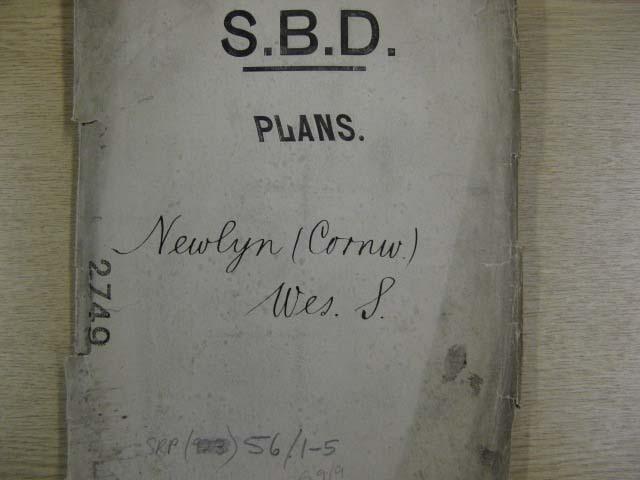 S.B.D.
PLANS.
Newlyn (Cornw.)
Wes. S.
2749
SRP ( ) 56/1-5